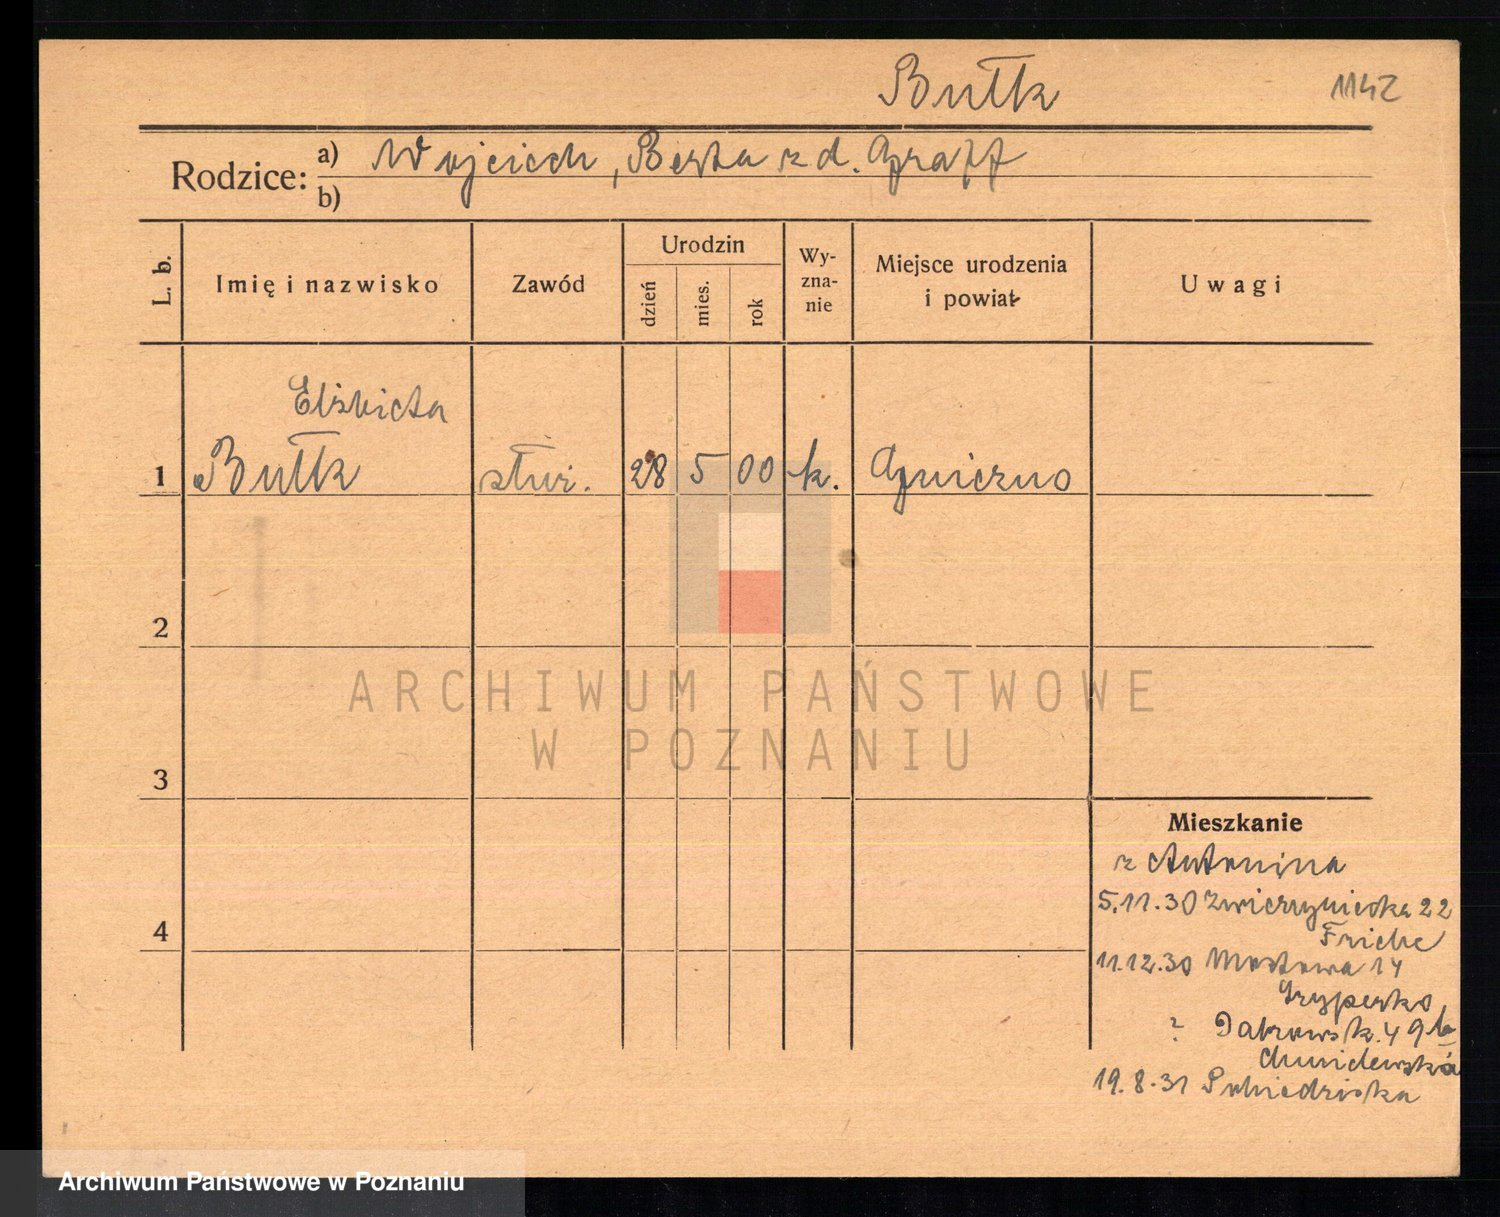 Bułk 1142
Rodzice: a) Wojciech, Berta z d. Graff
b)
L. b. Imię i nazwisko Zawód Urodzin dzień mies. rok Wy-zna-nie Miejsce urodzenia i powiat Uwagi
Elżbieta
1 Bułk służ. 28 5 00 k. Gniezno
2
ARCHIWUM PAŃSTWOWE
W POZNANIU
3
Mieszkanie
z Antonina
5.11.30 Zwierzyniecka 22
4
11.12.30 Mostowa 14
? Dąbrowsk. 49b
19.8.31
Archiwum Państwowe w Poznaniu